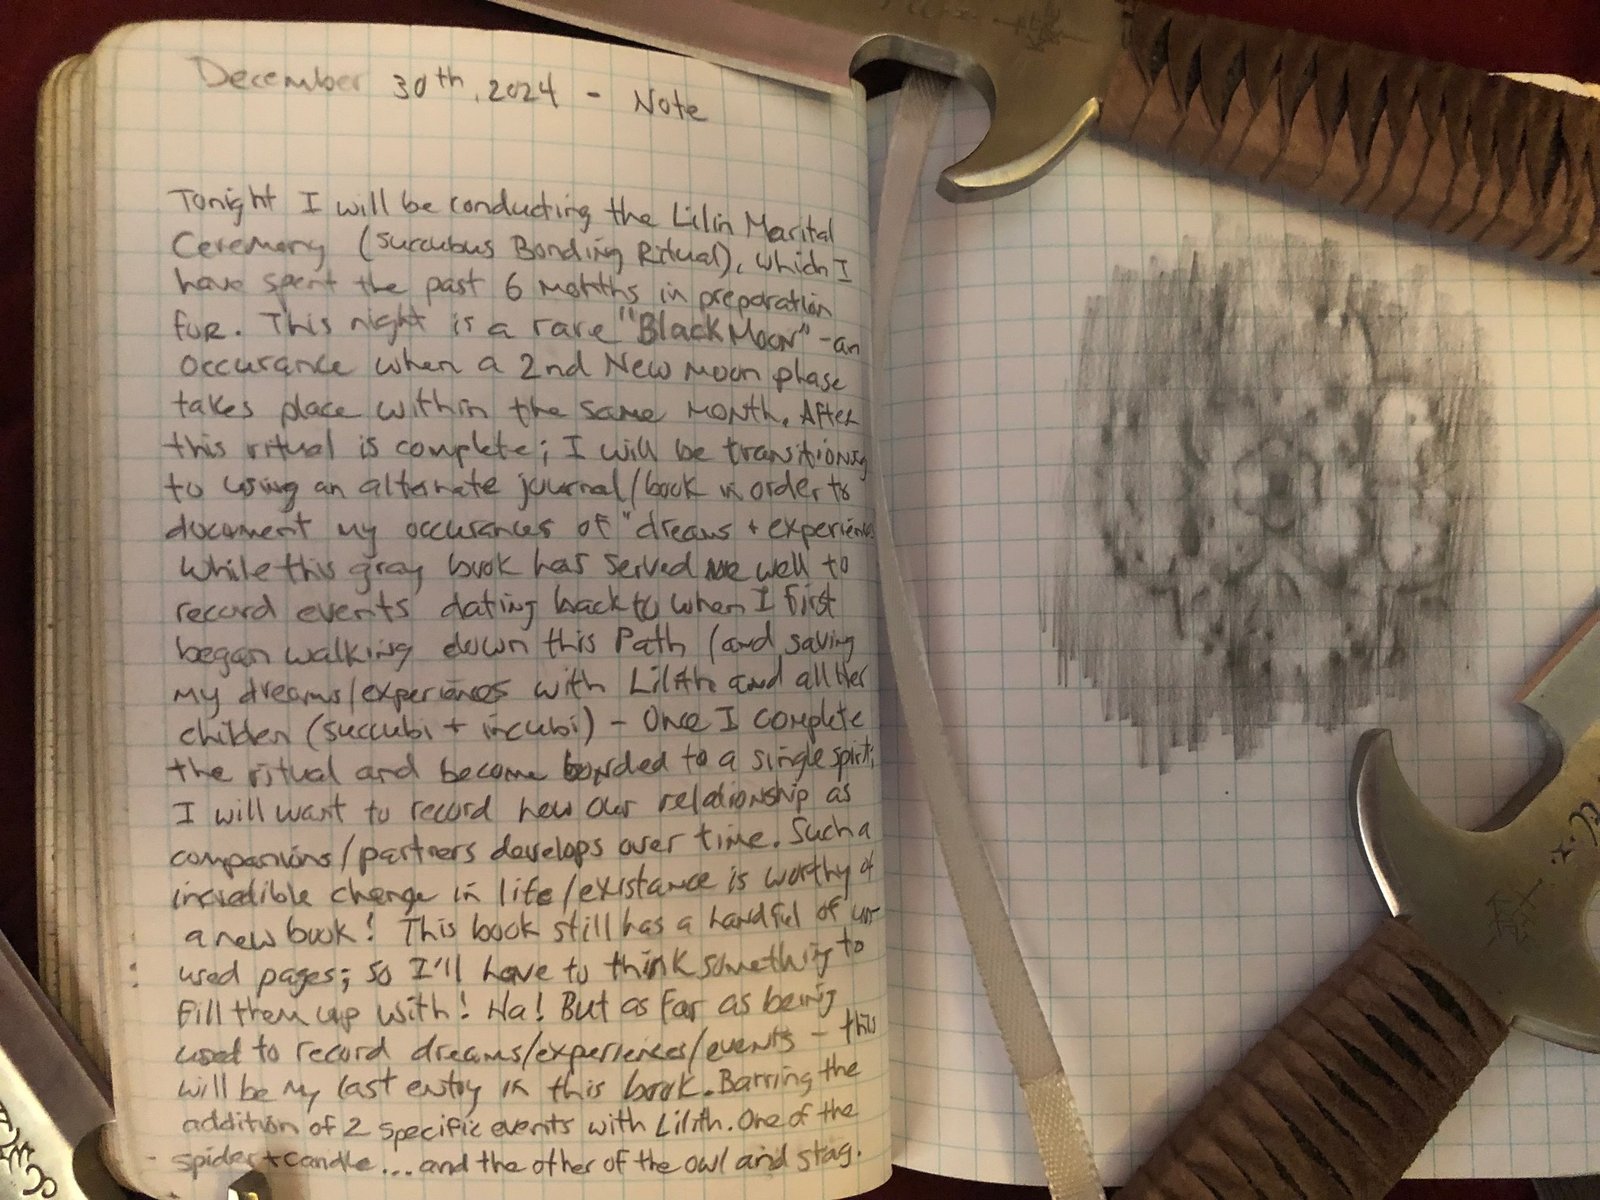 December 30th, 2024 - Note
Tonight I will be conducting the Lilin Marital
Ceremony (Succubus Bonding Ritual), which I
have spent the past 6 months in preparation
for. This night is a rare "Black Moon" - an
occurance when a 2nd New Moon phase
takes place within the same month. After
this ritual is complete; I will be transitioning
to using an alternate journal/book in order to
document my occurances of "dreams + experiences
While this gray book has served me well to
record events dating back to when I first
began walking down this Path (and saving
my dreams/experiences with Lilith and all Her
children (succubi + incubi) - Once I complete
the ritual and become bonded to a single spirit;
I will want to record how our relationship as
companions/partners develops over time. Such a
incredible change in life/existance is worthy of
a new book! This book still has a handful of un-
used pages; so I'll have to think something to
fill them up with! Ha! But as far as being
used to record dreams/experiences/events - this
will be my last entry in this book. Barring the
addition of 2 specific events with Lilith. One of the
spider + candle... and the other of the owl and stag.